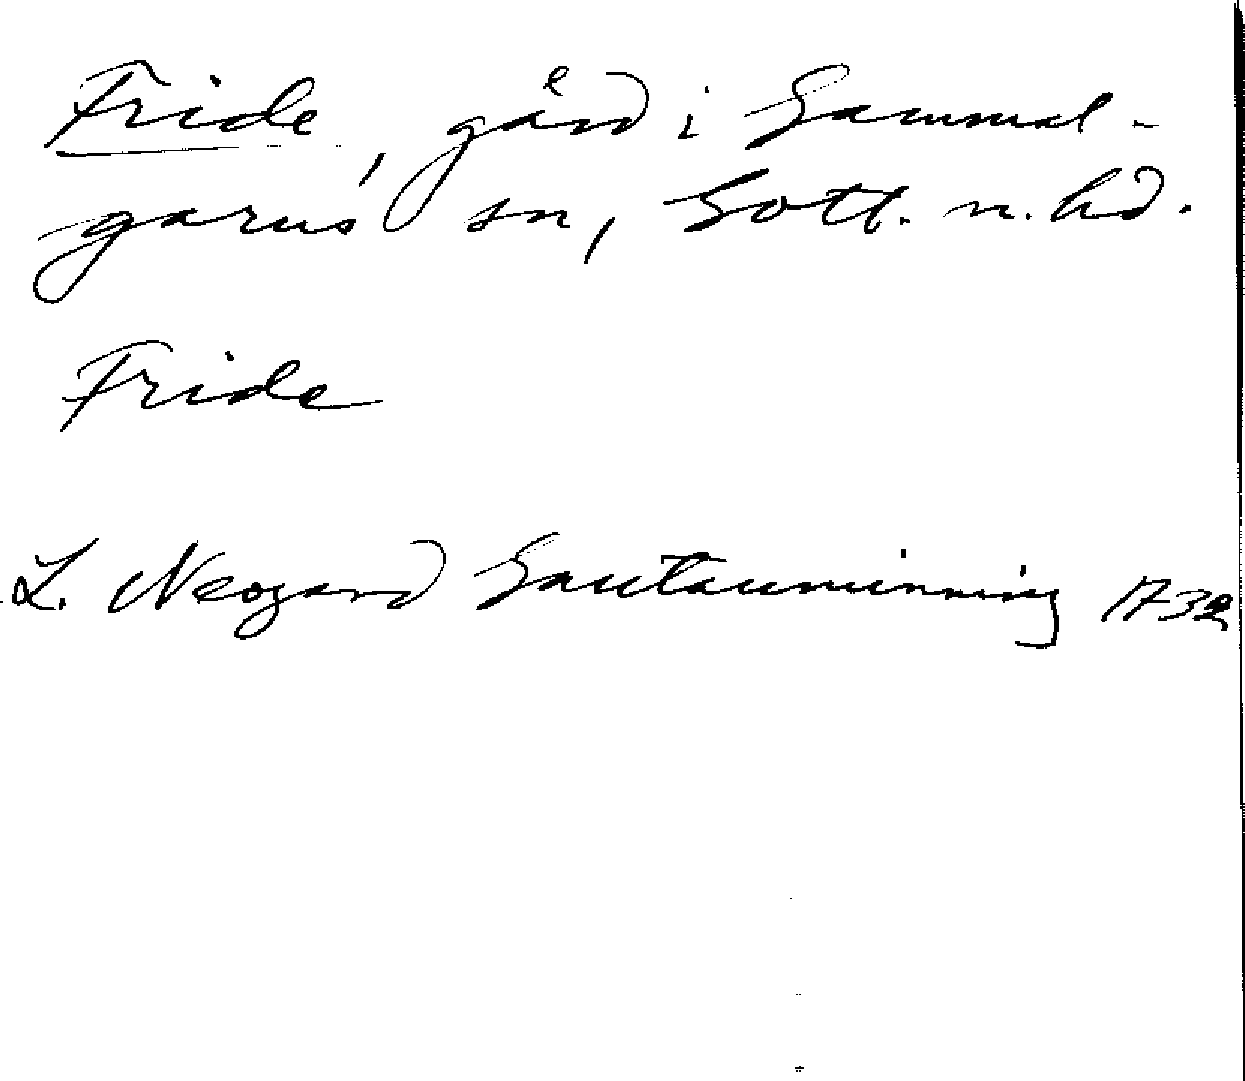 Fride, gård i Gammal-
garns sn, Gotl. n. hd.
Fride
L. Neogard Gautauminning 1732